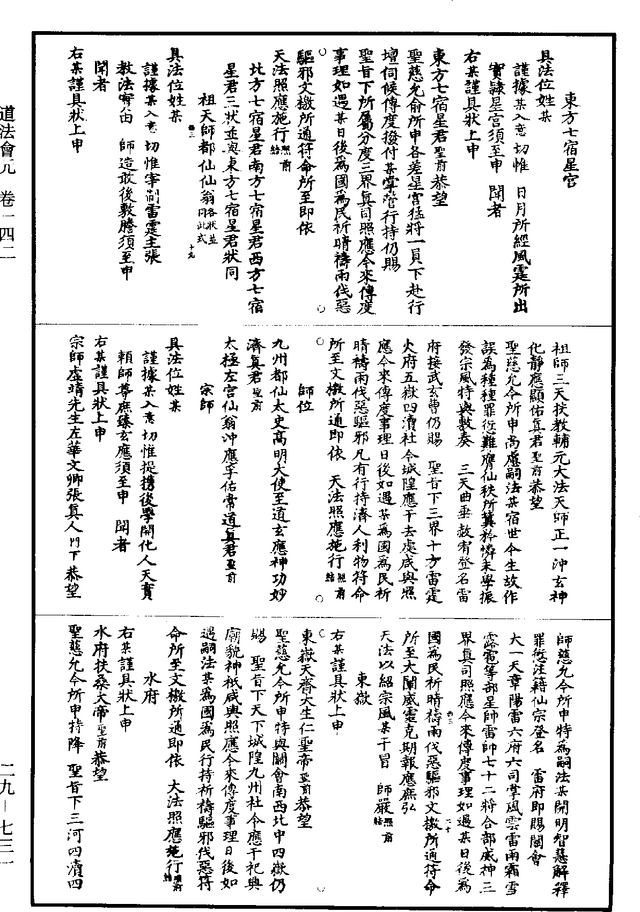 東方七宿星宮
具法位姓某
謹據某入意 切惟 日月所經風霆所出
實隸星宮須至申 聞者
右某謹具狀上申
東方七宿星君聖前恭望
聖慈允俞所申各差星宮猛將一員下赴行
壇伺候傳度撥付某掌管行持仍賜
聖旨下所屬分度三界真司照應今來傳度
事理如遇某日後為國為民祈晴禱雨伐惡
驅邪文檄所通符命所至即依
天法照應施行
北方七宿星君南方七宿星君西方七宿
星君三狀並與東方七宿星君狀同
祖天師都仙仙翁各狀並同此式
具法位姓某
謹據某入意 切惟宰制雷霆主張
教法寄由 師造敢後敷謄須至申
聞者
右某謹具狀上申
祖師三天扶教輔元大法天師正一沖玄神
化靜應顯佑真君聖前恭望
聖慈允令所申尚慮嗣法某宿世今生故作
誤為種種罪愆難膺仙秩所冀矜憐末學振
發宗風特與敷奏 三天曲垂赦宥登名雷
府接武玄曹仍賜 聖旨下三界十方雷霆
火府五嶽四瀆社令城隍應干去處咸與照
應今來傳度事理日後如遇某為國為民祈
晴禱雨伐惡驅邪凡有行持濟人利物符命
所至文檄所通即依 天法照應施行
師位
九州都仙太史高明大使至道玄應神功妙
濟真君聖前
太極左宮仙翁沖應孚佑常道真君聖前
宗師
具法位姓某
謹據某入意 切惟提攜後學開化人天實
賴師尊庶臻玄應須至申 聞者
右某謹具狀上申
宗師虛靖先生左華文卿張真人門下恭望
師慈允令所申特為嗣法某開明智慧解釋
罪愆注籍仙宗登名 雷府即賜關會
大一天章陽雷六府六司掌風雲雷雨霜雪
露雹等部星師雷師七十二將合部威神三
界真司照應今來傳度事理如遇某日後為
國為民祈晴禱雨伐惡驅邪文檄所通符命
所至大闡威靈克期報應庶弘
天法以紹宗風某干冒 師嚴
東嶽
右某謹具狀上申
東嶽天齊大生仁聖帝聖前恭望
聖慈允令所申特與關會南西北中四嶽仍
賜 聖旨下天下城隍九州社令應干祀典
廟貌神祇咸與照應今來傳度事理日後如
遇嗣法某為國為民行持祈禱驅邪伐惡符
命所至文檄所通即依 大法照應施行
水府
右某謹具狀上申
水府扶桑大帝聖前恭望
聖慈允令所申特降 聖旨下三河四瀆四
道法會元 卷一四二
二九-七三一